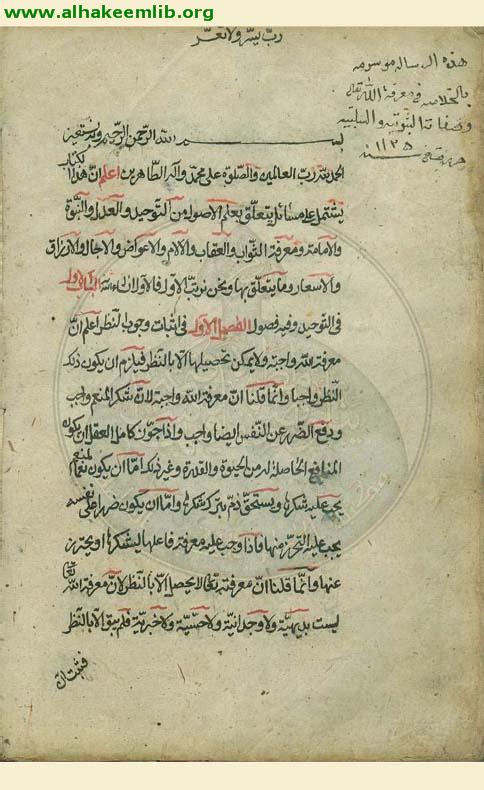 www.alhakeemlib.org
رب يسر ولا تعسر
هذه الرساله موسومه
بالخلاصه في معرفة الله تعالى
وصفاته الثبوتيه والسلبيه
سنه ١١٣٥
بسم الله الرحمن الرحيم وبه نستعين
الحمد لله رب العالمين والصلوة على محمد وآله الطاهرين اعلم ان هذا الكتاب
يشتمل على مسائل يتعلق بعلم الاصول من التوحيد والعدل والنبوة
والامامة ومعرفة الثواب والعقاب والآلام والاعواض والآجال والارزاق
والاسعار وما يتعلق بها ونحن نرتب الاول فالاول ان شاء الله الباب الاول
في التوحيد وفيه فصول الفصل الاول في اثبات وجوب النظر اعلم انّ
معرفة الله واجبة ولا يمكن تحصيلها الا بالنظر فيلزم ان يكون ذلك
النظر واجبا وانما قلنا انّ معرفة الله واجبة لانّ شكر المنعم واجب
ودفع الضرر عن النفس ايضا واجب واذا جوّز كامل العقل ان يكون
المنافع الحاصلة له من الحيوة والقدرة وغير ذلك امّا ان يكون نعما لمنعم
يجب عليه شكرها ويستحق الذم بترك شكرها وامّا ان يكون ضررا على نفسه
يجب عليه التحرز منها فاذا وجب عليه معرفة فاعلها ليشكرها او يحترز
عنها وانّما قلنا انّ معرفته تعالى لا يحصل الّا بالنظر لانّ معرفة الله تعالى
ليست بديهيّة ولا وجدانيّة ولا حسّيّة ولا خبريّة فلم يبق الّا بالنظر
فثبت ان